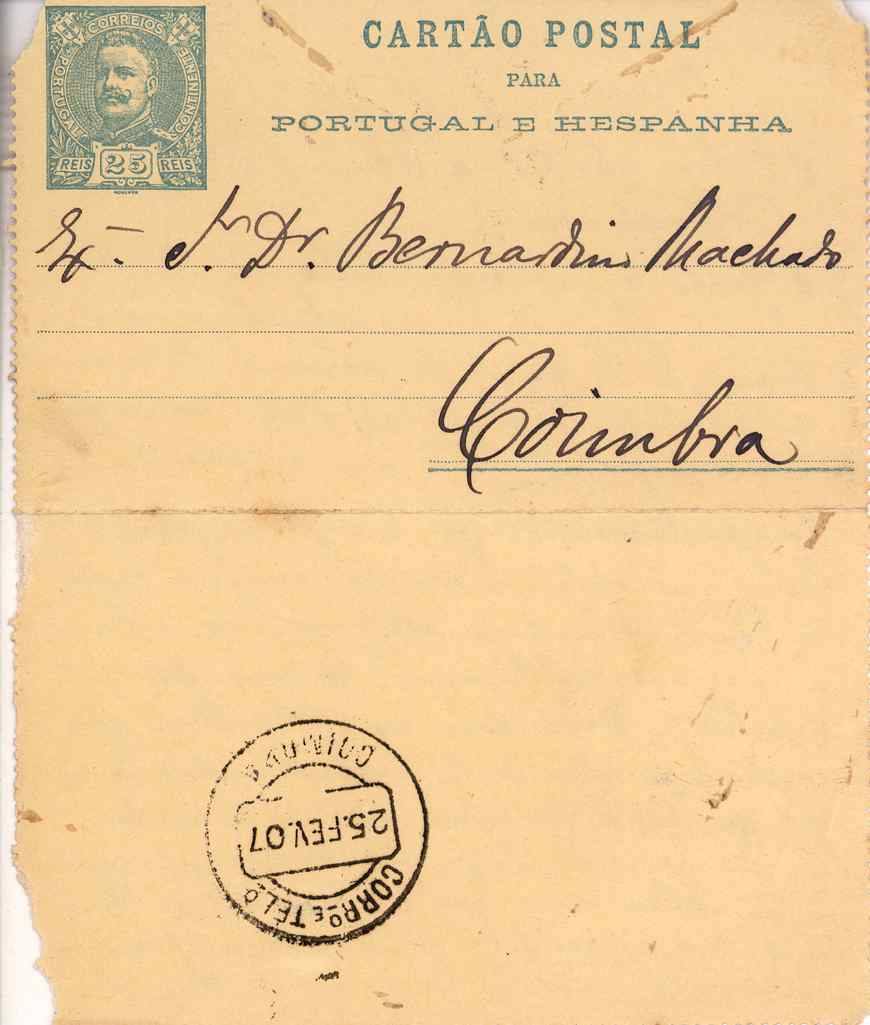 CORREIOS
PORTUGAL
CONTINENTE
REIS 25 REIS
MOUCHON
CARTÃO POSTAL
PARA
PORTUGAL E HESPANHA
Ex.ᵐᵒ Sr. Dr. Bernardino Machado
Coimbra
COIMBRA
25.FEV.07
CORRº E TELº